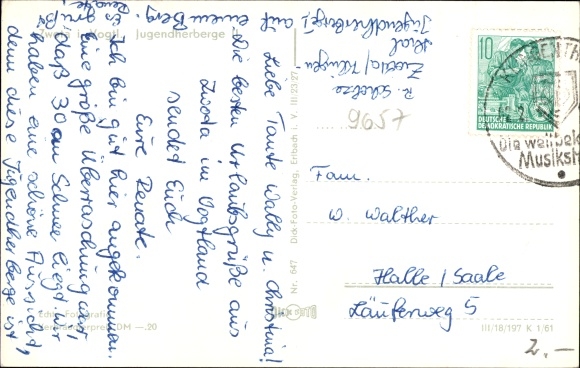 Zwota i. Vogtl. Jugendherberge
Liebe Tante Wally u. Christina!
Die besten Urlaubsgrüße aus
Zwota in Vogtland
sendet Euch
Eure Renate.
Ich bin gut hier angekommen.
Eine große Überraschung war,
daß 30 cm Schnee liegt. Wir
haben eine schöne Aussicht,
denn diese Jugendherberge ist
auf
einem Berg.
Es grüßt
Renate!
R. Scholze
Zwota/Klingen-
thal
Jugendherberge I
9657
10
DEUTSCHE
DEMOKRATISCHE REPUBLIK
KLINGENTHA
Die weltbek
Musiksta
Fam.
W. Walther
Halle / Saale
Läuferweg 5
Echte Fotografie
Verbraucherpreis DM —.20
Nr. 647 Dick-Foto-Verlag, Erlbach i. V. III/23/27
III/18/197 K 1/61
2,—